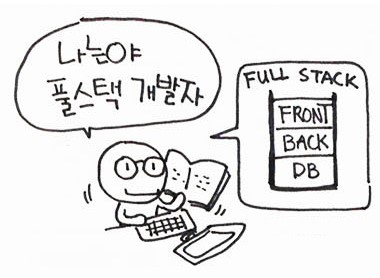 나는야
풀스택 개발자
FULL STACK
FRONT
BACK
DB